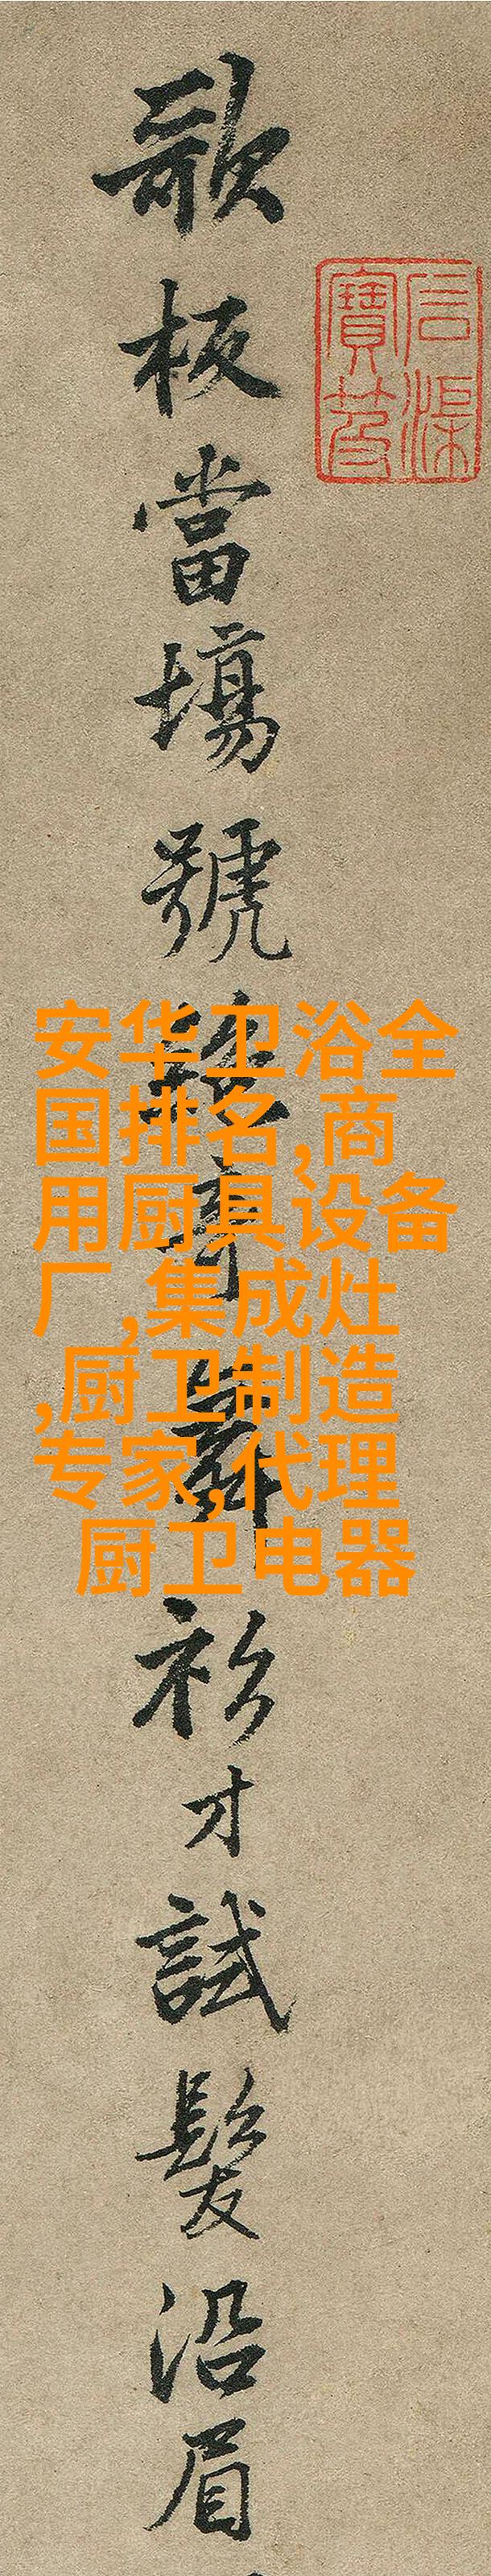 歌板當場號舞衫才試髮沿眉
石渠
寶笈
安华卫浴全
国排名,商
用厨具设备
厂,集成灶
,厨卫制造
专家,代理
厨卫电器